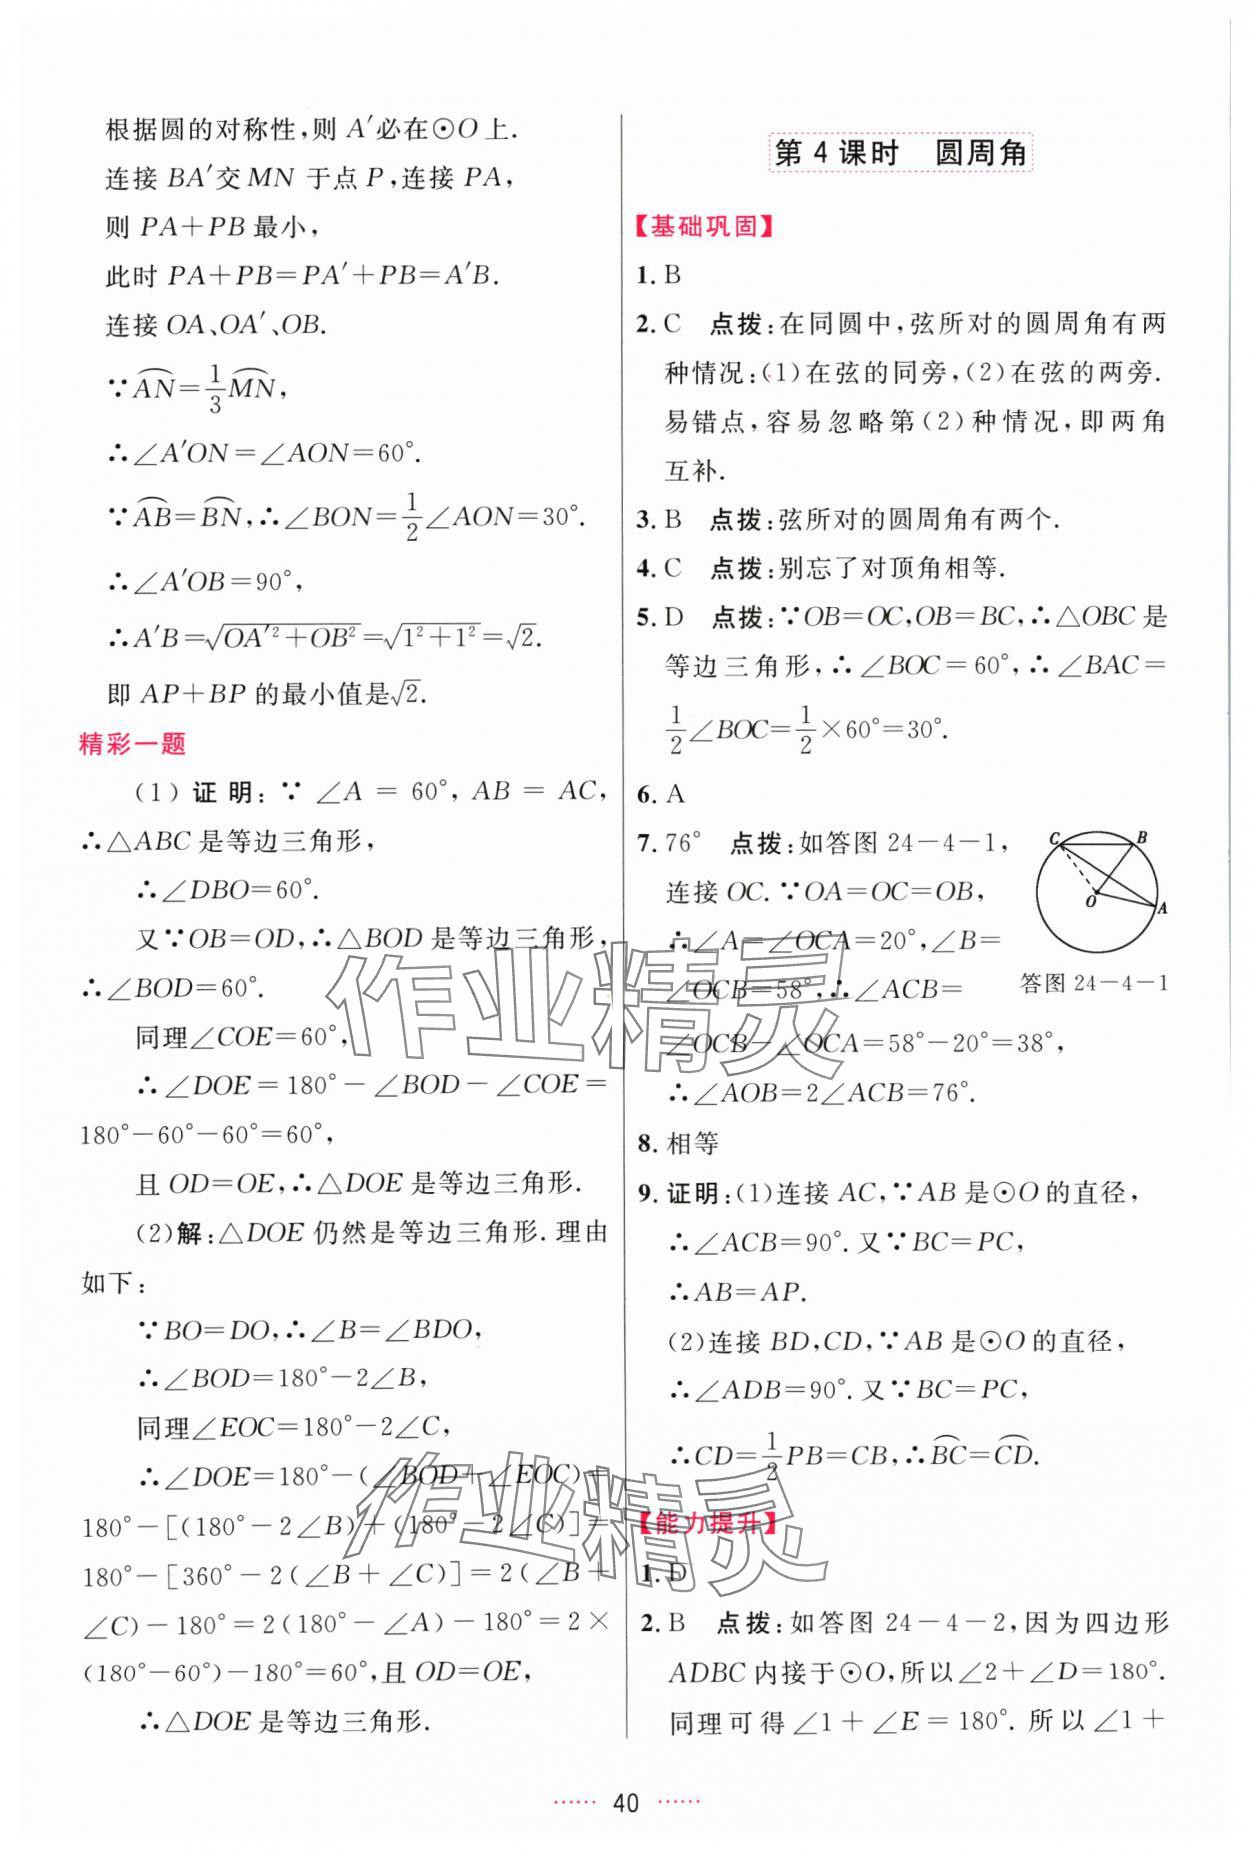 根据圆的对称性,则 A′必在⊙O 上.
连接 BA′交 MN 于点 P,连接 PA,
则 PA+PB 最小,
此时 PA+PB=PA′+PB=A′B.
连接 OA、OA′、OB.
∵$\overset{\frown}{AN}=\frac{1}{3}\overset{\frown}{MN}$,
∴∠A′ON=∠AON=60°.
∵$\overset{\frown}{AB}=\overset{\frown}{BN}$,∴∠BON=$\frac{1}{2}$∠AON=30°.
∴∠A′OB=90°,
∴A′B=$\sqrt{OA′^2+OB^2}=\sqrt{1^2+1^2}=\sqrt{2}$.
即 AP+BP 的最小值是$\sqrt{2}$.
精彩一题
(1) 证明: ∵ ∠A = 60°, AB = AC,
∴△ABC 是等边三角形,
∴∠DBO=60°.
又∵OB=OD,∴△BOD 是等边三角形,
∴∠BOD=60°.
同理∠COE=60°,
∴∠DOE=180°-∠BOD-∠COE=
180°-60°-60°=60°,
且 OD=OE,∴△DOE 是等边三角形.
(2)解:△DOE 仍然是等边三角形.理由
如下:
∵BO=DO,∴∠B=∠BDO,
∴∠BOD=180°-2∠B,
同理∠EOC=180°-2∠C,
∴∠DOE=180°-(∠BOD+∠EOC)=
180°-[(180°-2∠B)+(180°-2∠C)]=
180°-[360°-2(∠B+∠C)]=2(∠B+
∠C)-180°=2(180°-∠A)-180°=2×
(180°-60°)-180°=60°,且 OD=OE,
∴△DOE 是等边三角形.
第 4 课时 圆周角
【基础巩固】
1. B
2. C 点拨:在同圆中,弦所对的圆周角有两
种情况:(1)在弦的同旁,(2)在弦的两旁.
易错点,容易忽略第(2)种情况,即两角
互补.
3. B 点拨:弦所对的圆周角有两个.
4. C 点拨:别忘了对顶角相等.
5. D 点拨:∵OB=OC,OB=BC,∴△OBC 是
等边三角形,∴∠BOC=60°,∴∠BAC=
$\frac{1}{2}$∠BOC=$\frac{1}{2}$×60°=30°.
6. A
7. 76° 点拨:如答图 24-4-1,
连接 OC.∵OA=OC=OB,
∴∠A=∠OCA=20°,∠B=
∠OCB=58°,∴∠ACB=
∠OCB-∠OCA=58°-20°=38°,
∴∠AOB=2∠ACB=76°.
C B
O A
答图 24-4-1
8. 相等
9. 证明:(1)连接 AC,∵AB 是⊙O 的直径,
∴∠ACB=90°.又∵BC=PC,
∴AB=AP.
(2)连接 BD,CD,∵AB 是⊙O 的直径,
∴∠ADB=90°.又∵BC=PC,
∴CD=$\frac{1}{2}$PB=CB,∴$\overset{\frown}{BC}=\overset{\frown}{CD}$.
【能力提升】
1. D
2. B 点拨:如答图 24-4-2,因为四边形
ADBC 内接于⊙O,所以∠2+∠D=180°.
同理可得∠1+∠E=180°.所以∠1+
······ 40 ······
作业精灵
作业精灵